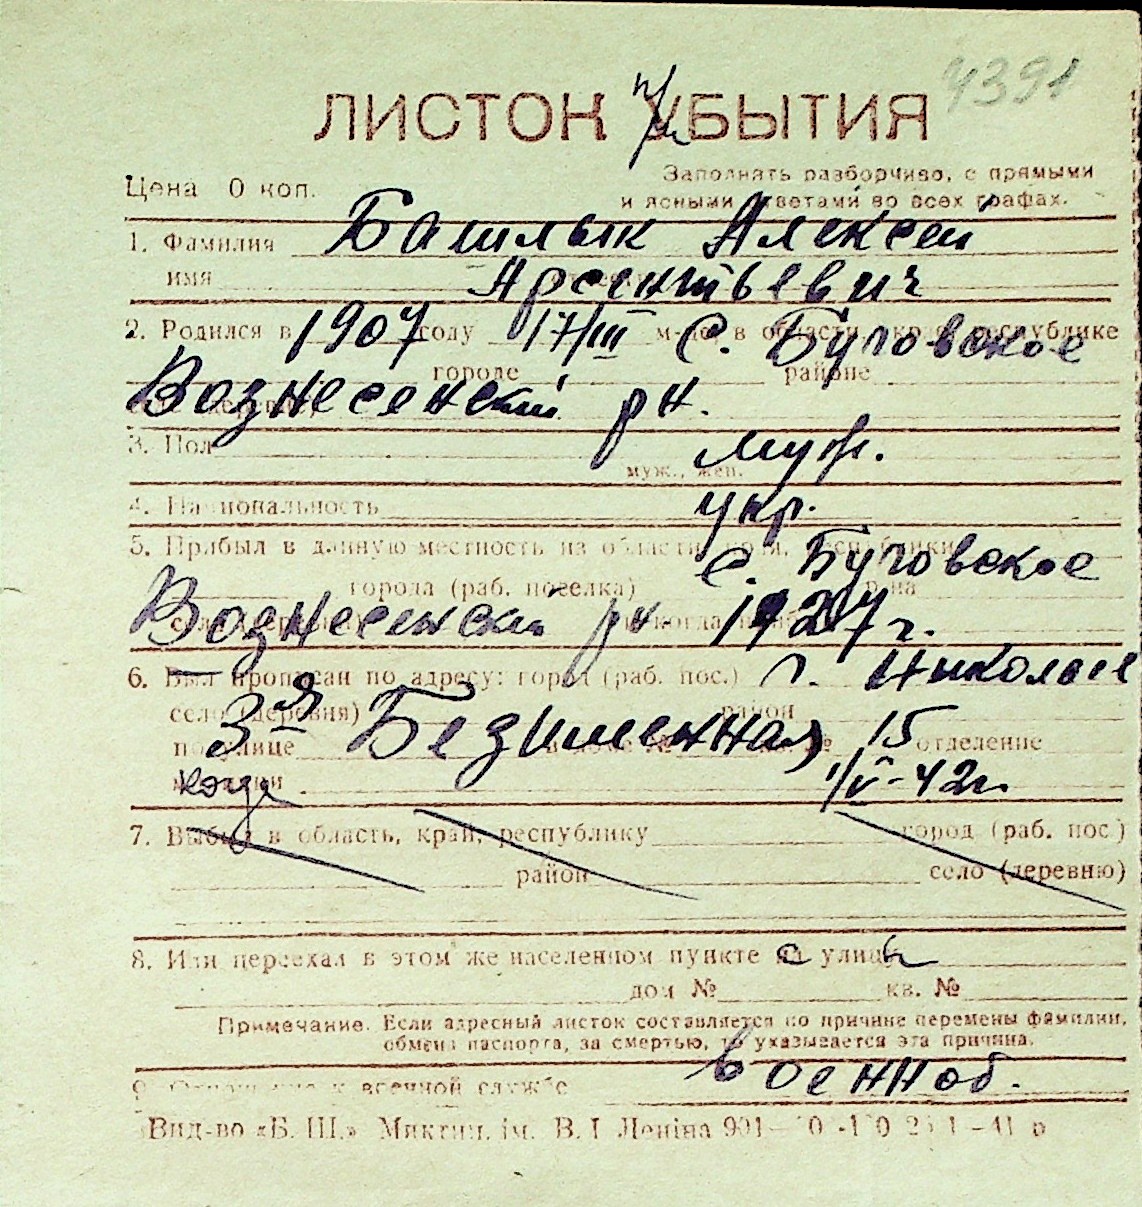 4391
ЛИСТОК УБЫТИЯ
п/и
Цена 0 коп.
Заполнять разборчиво, с прямыми
и ясными ответами во всех графах.
1. Фамилия Башлык Алексей
имя Арсентьевич
2. Родился в 1907 году 17/III м-це в области, крае, республике С. Буговское
городе районе
Вознесенский рн.
3. Пол муж.
муж., жен.
4. Национальность укр.
5. Прибыл в данную местность из области, края, республики С. Буговское
города (раб. поселка) р-на
Вознесенский рн 1927 г.
6. Был прописан по адресу: город (раб. пос.) г. Николаев
село (деревня) район
по улице 3я Безименная 15 отделение
когда 1/V-42 г.
7. Выбыл в область, край, республику город (раб. пос.)
район село (деревню)
8. Или переехал в этом же населенном пункте с улицы
дом № кв. №
Примечание. Если адресный листок составляется по причине перемены фамилии,
обмена паспорта, за смертью, то указывается эта причина.
9. Отношение к военной службе военноб.
Вид-во «Б. Ш.» Миктип. ім. В. І Леніна